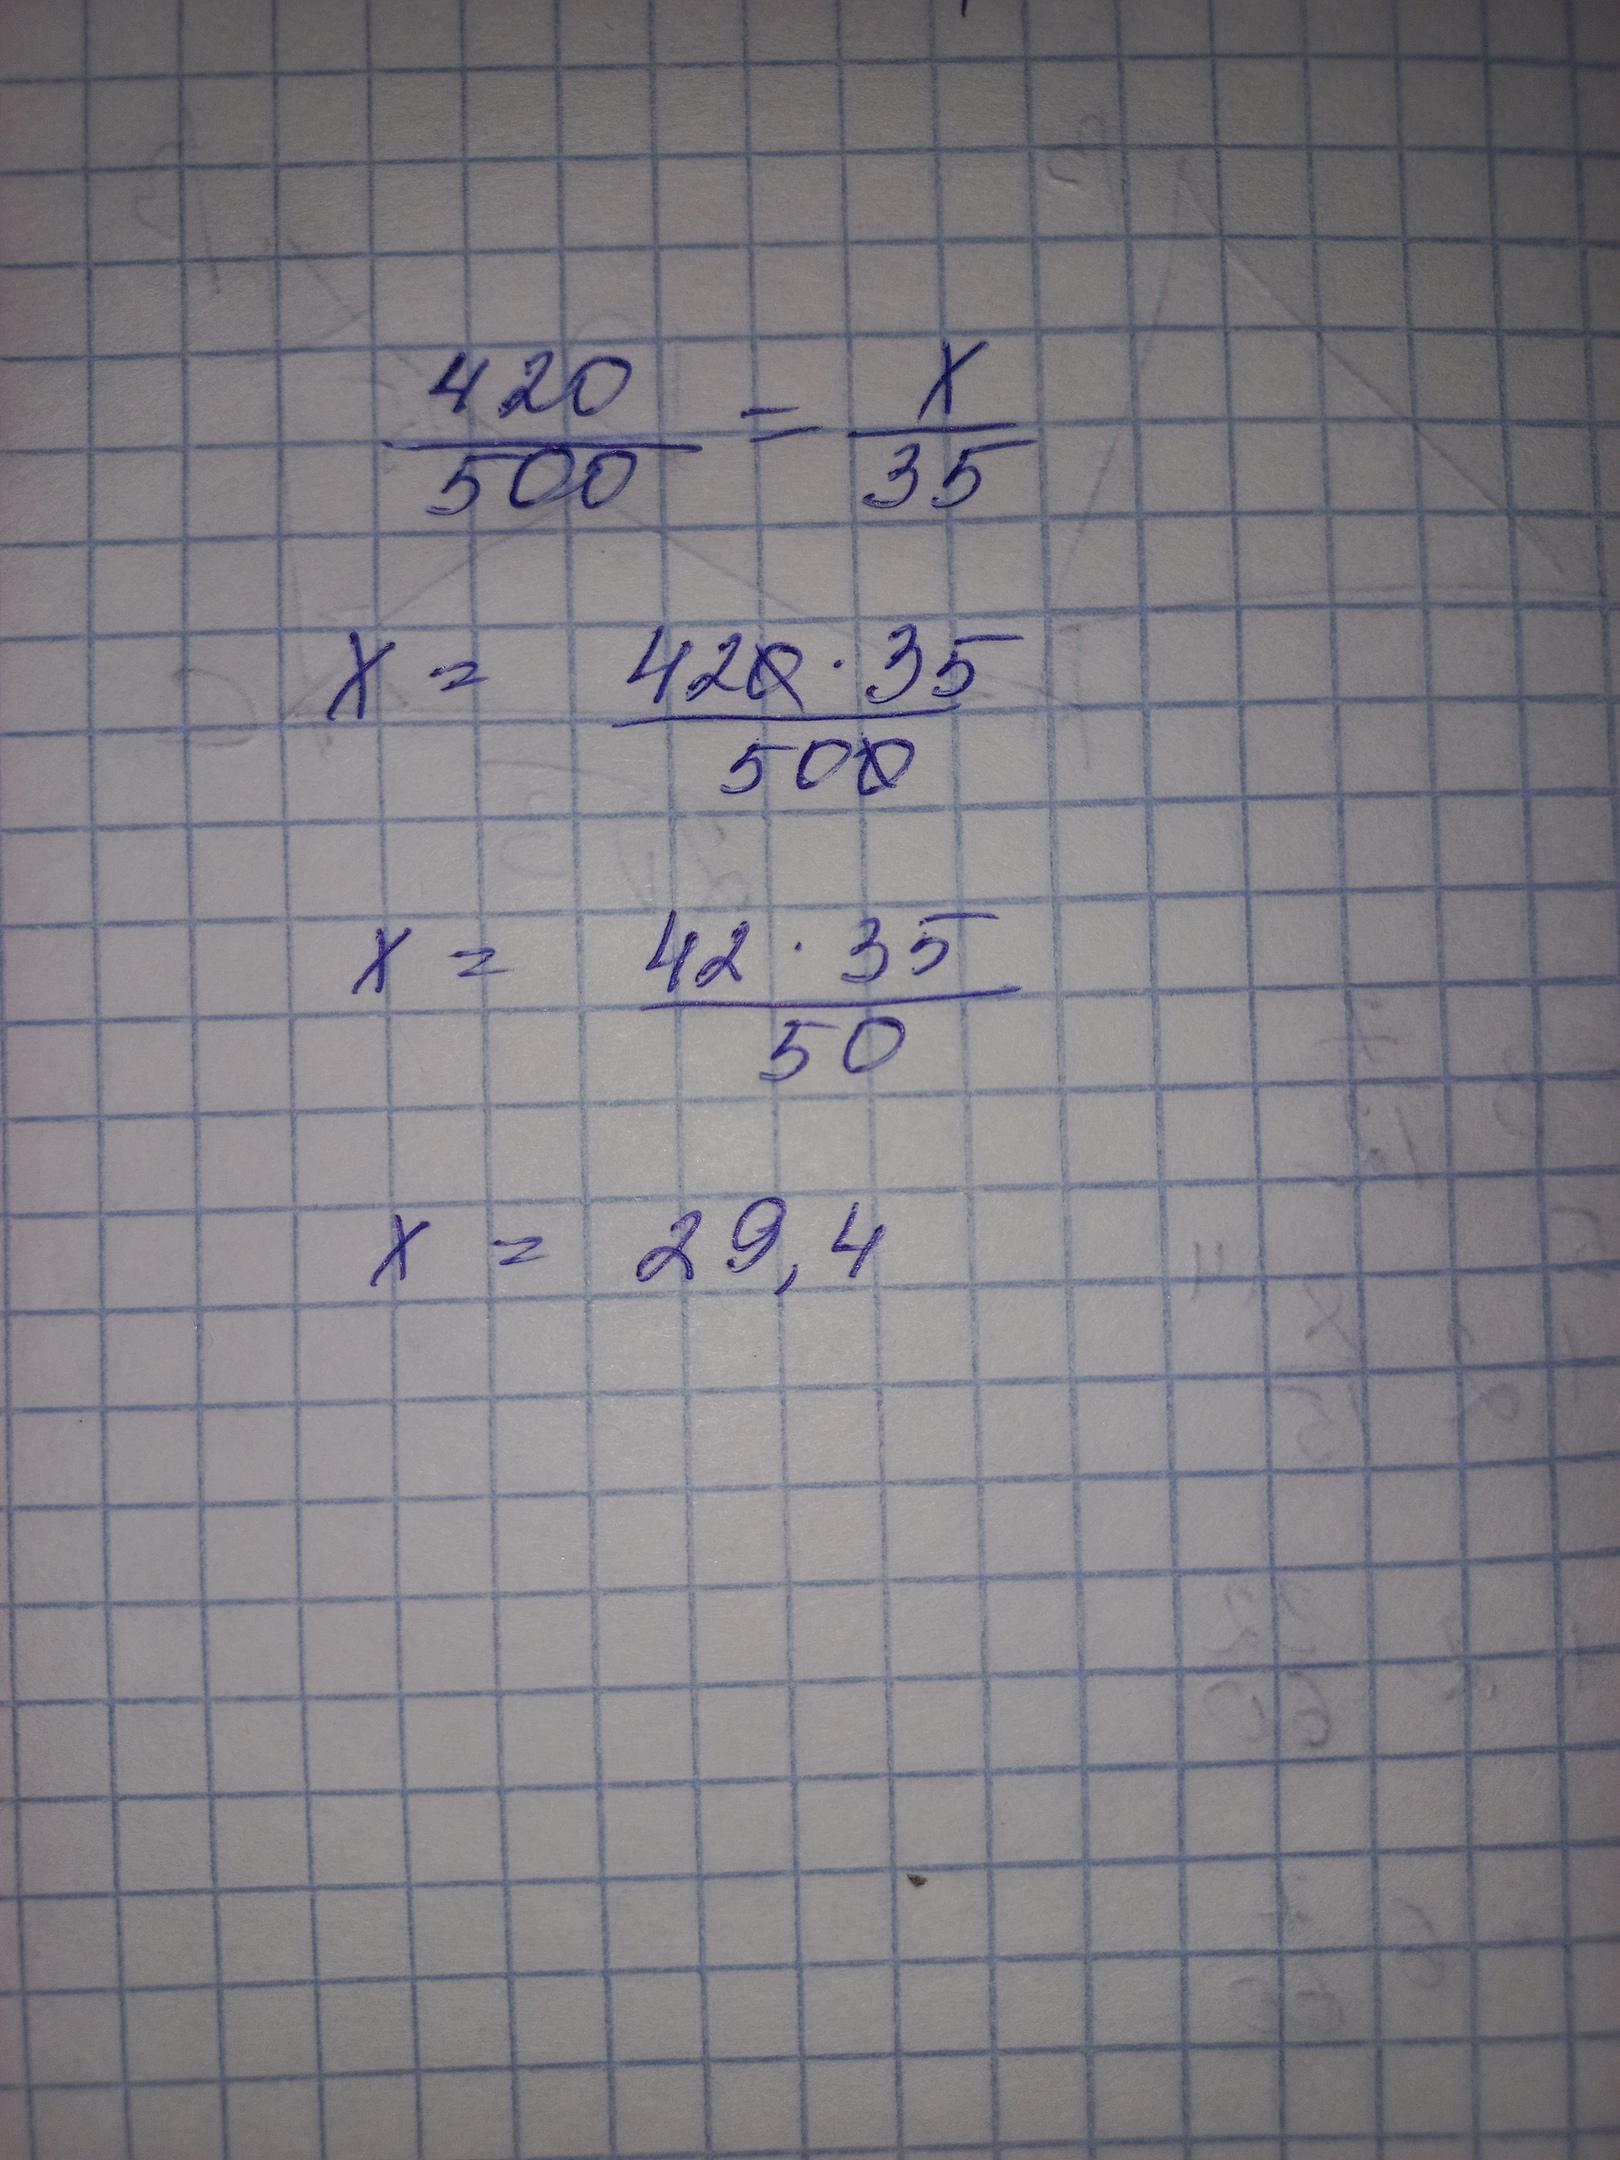 420/500 = x/35
x = 420 · 35/500
x = 42 · 35/50
x = 29,4